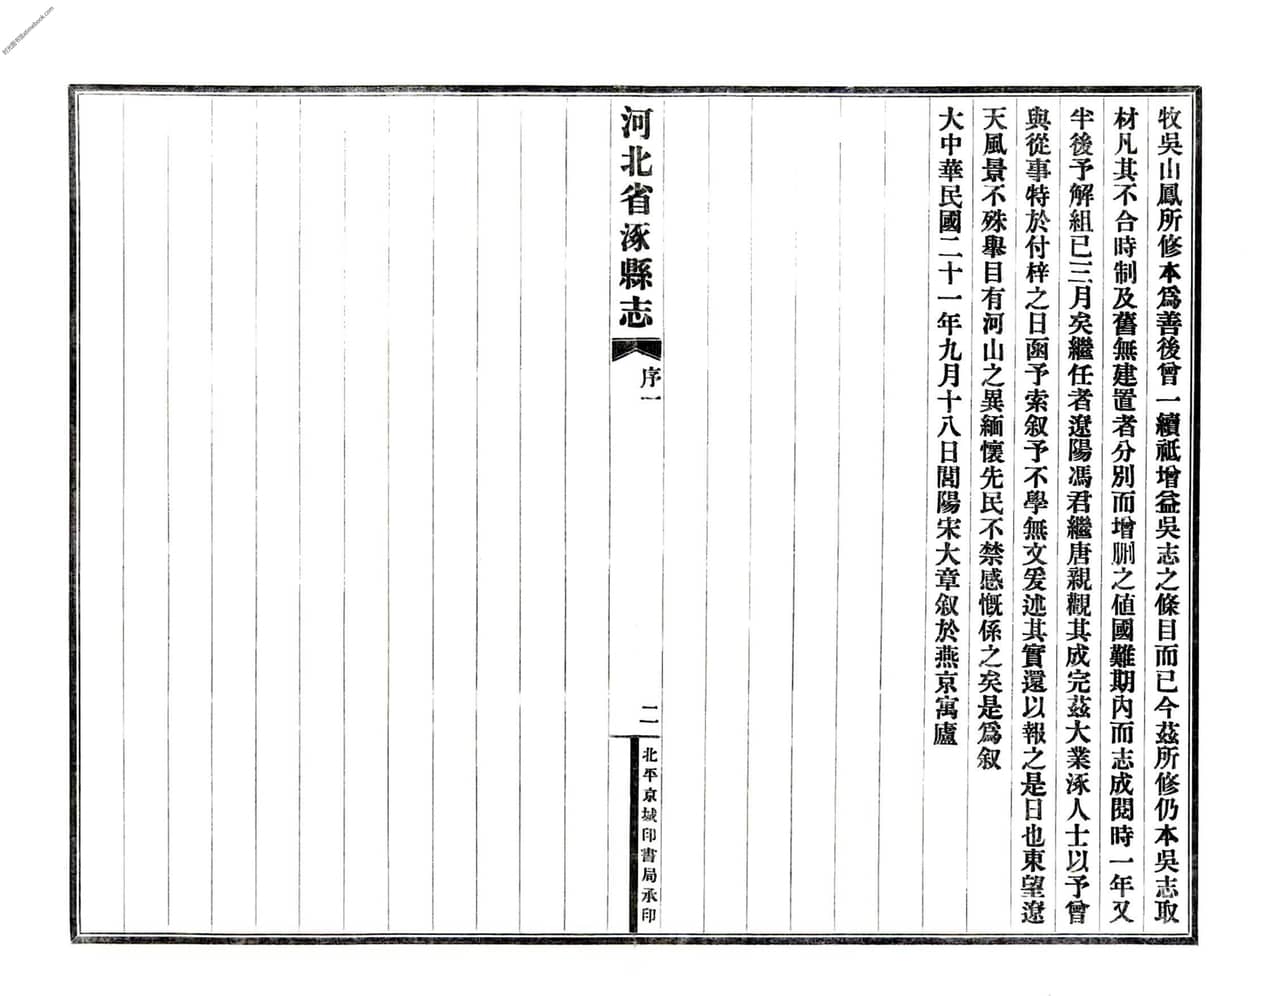 牧吳山鳳所修本爲善後曾一續祗增益吳志之條目而已今茲所修仍本吳志取
材凡其不合時制及舊無建置者分別而增刪之値國難期內而志成閱時一年又
半後予解組已三月矣繼任者遼陽馮君繼唐親觀其成完茲大業涿人士以予曾
與從事特於付梓之日函予索叙予不學無文爰述其實還以報之是日也東望遼
天風景不殊舉目有河山之異緬懷先民不禁感慨係之矣是爲叙
大中華民國二十一年九月十八日閭陽宋大章叙於燕京寓廬
河北省涿縣志
序一
二
北平京城印書局承印
时光图书馆atimebook.com